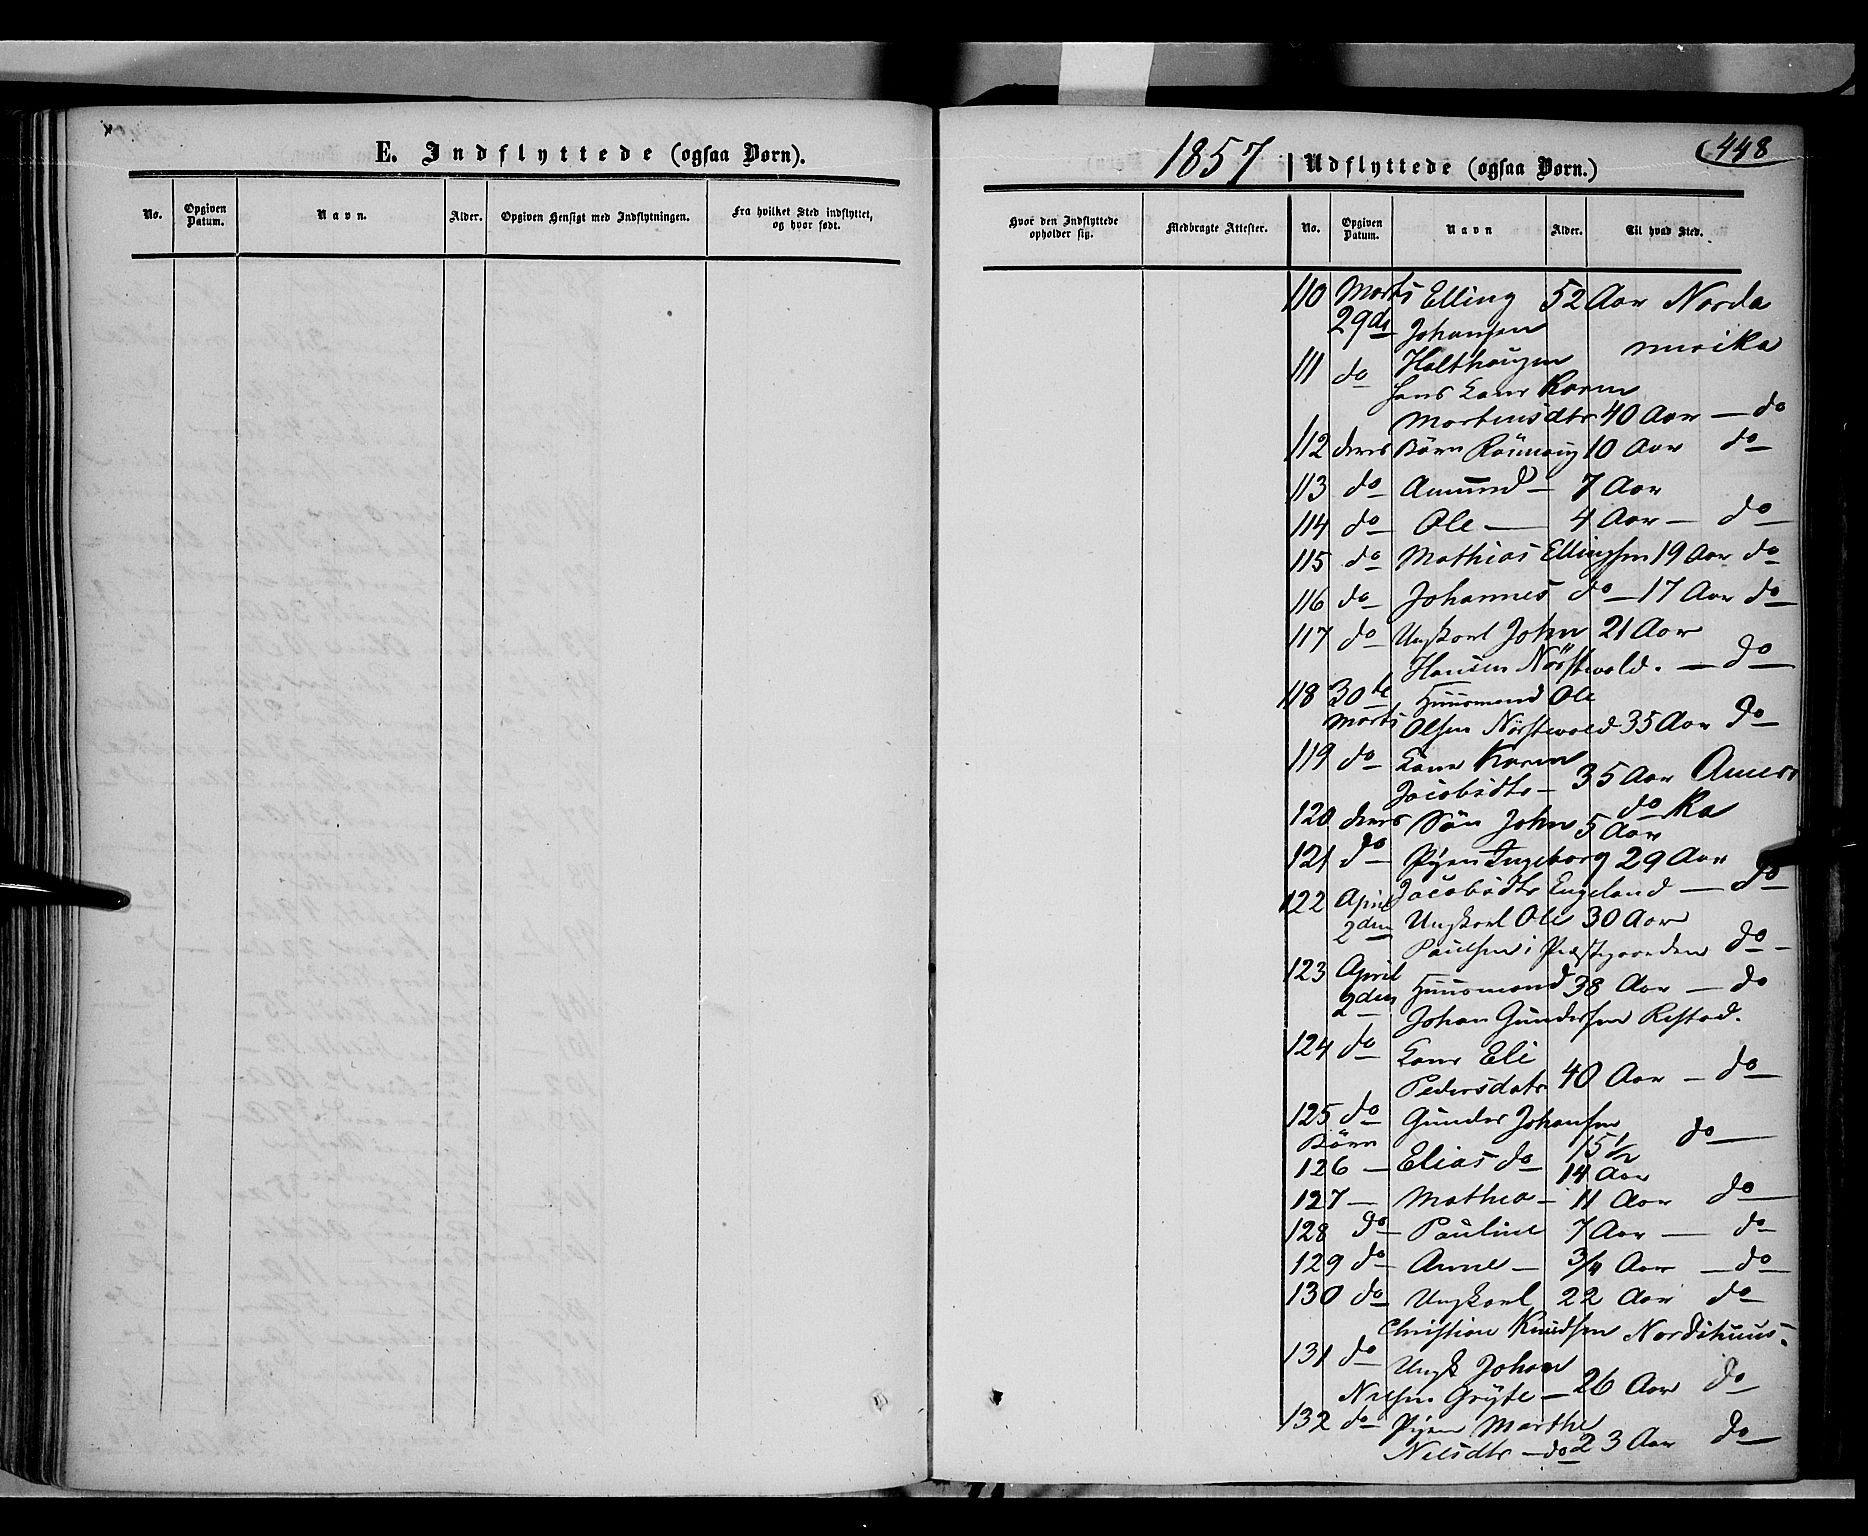 E. Indflyttede (ogsaa Børn).
No.
Opgiven Datum.
Navn.
Alder.
Opgiven Hensigt med Indflytningen.
Fra hvilket Sted indflyttet, og hvor født.
1857
Udflyttede (ogsaa Børn.)
448
Hvor den Indflyttede opholder sig.
Medbragte Attester.
No.
Opgiven Datum.
Navn
Alder.
Til hvad Sted.
110 Marts Elling 52 Aar Norda
29de Johansen
merika
111 do Holthaugen
hans Kone Karen
Mortensdtr 40 Aar — do
112 deres Børn Rönnaug 10 Aar do
113 do Amund — 7 Aar
114 do Ole — 4 Aar — do
115 do Mathias Ellingsen 19 Aar do
116 do Johannes do — 17 Aar do
117 do Ungkarl John 21 Aar
Hansen Nörstevold. — do
118 30te Huusmand Ole
Marts Olsen Nörstevold 35 Aar do
119 do Kone Karen
Jacobsdtr — 35 Aar Ameri
120 deres Sön John 5 Aar do ka
121 do Pigen Ingeborg 29 Aar
Jacobsdtr Engeland — do
122 April
2den Ungkarl Ole 30 Aar
Paulsen i Præstegaarden do —
123 April
2den Huusmand 38 Aar — do
Johan Gundersen Ristad.
124 do Kone Eli
Pedersdatr 40 Aar — do
125 do Gunder Johansen
Börn 15 1/2 do
126 — Elias do 14 Aar
127 — Mathea — 11 Aar do
128 do Pauline 7 Aar — do
129 do Anne — 3/4 Aar — do
130 do Ungkarl 22 Aar do
Christian Knudsen Nordihuus.
131 do Ungk Johan
Nilsen Gryte — 26 Aar do
132 do Pigen Marthe
Nilsdtr — do 23 Aar do